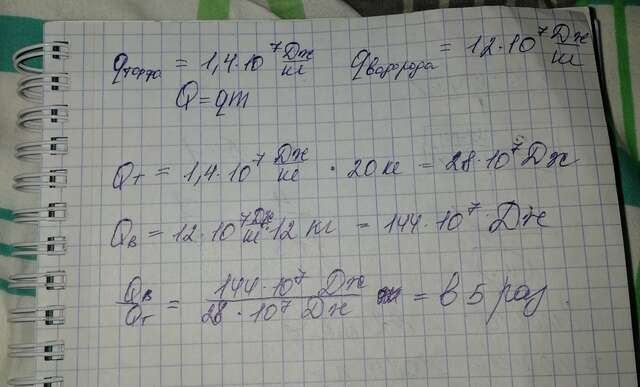 qторфа = 1,4·10⁷ Дж/кг qводорода = 12·10⁷ Дж/кг
Q=qm
Qт = 1,4·10⁷ Дж/кг · 20 кг = 28·10⁷ Дж
Qв = 12·10⁷ Дж/кг·12 кг = 144·10⁷ Дж
Qв/Qт = 144·10⁷ Дж/28·10⁷ Дж = в 5 раз.